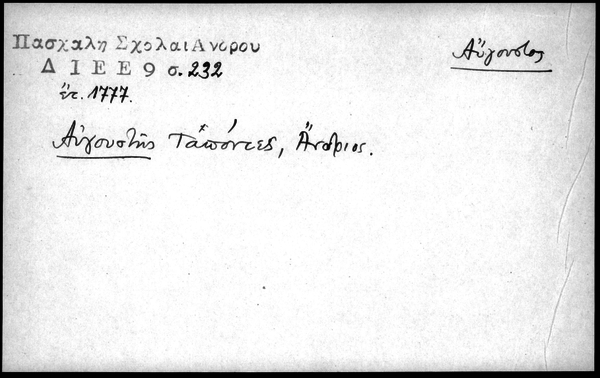 Πασχαλη Σχολαι Ανδρου
Αὔγουστος
Δ Ι Ε Ε 9 σ. 232
ἔτ. 1777.
Αὐγουστῆς Ταπόντες, Ἄνδριος.